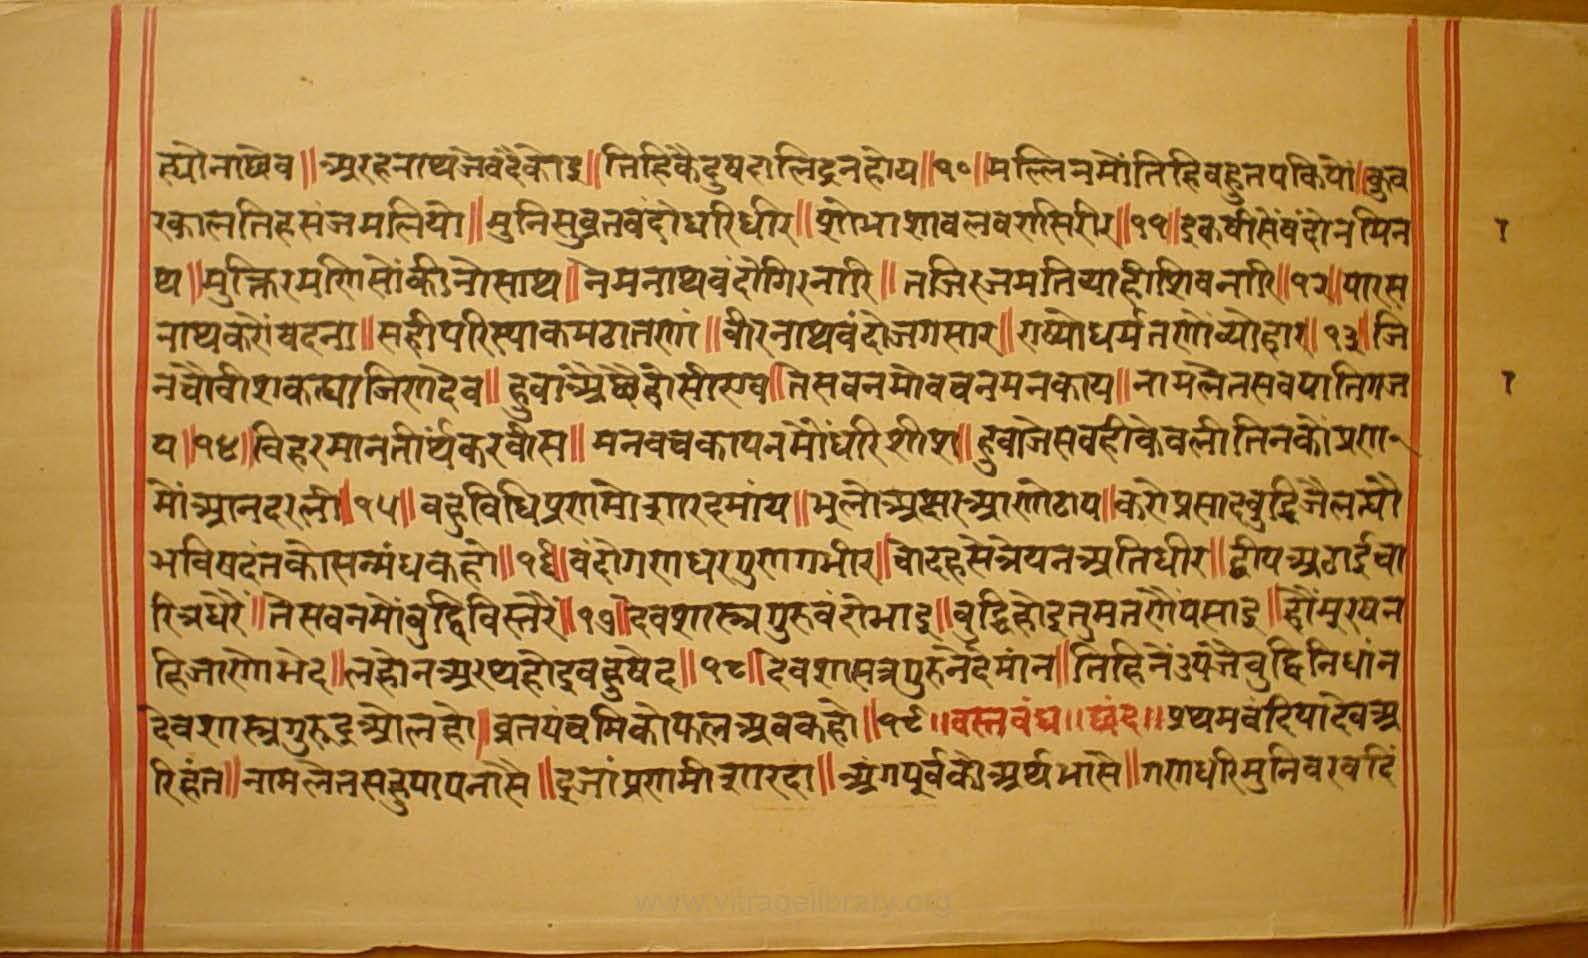 ल्यौनाष्येव॥अरहनाथजेवंदैकोइ॥तिहिकैदुषदालिद्रनहोय॥१०॥मल्लिनमौंतिहिबहुतपकियौ॥कुव
रकालतिहसंजमलियो॥मुनिसुव्रतवंदौधरिधीर॥शोभाशावलवरासिरीर॥११॥इकवीसैंवंदौनमिन
थ॥मुक्तिरमणिसोंकीनोसाथ॥नमनाथवंदौगिरनारि॥तजिरजमतिव्याहीशिवनारि॥१२॥पारस
नाथकरौंवदना॥सहीपरिस्याकमठातणां॥वीरनाथवंदोजगसार॥राष्योधर्मतणोंव्योहार॥१३॥जि
नचौवीशकह्याजिणदेव॥हुवांअैछैहोसीएव॥तेसवनमोवचनमनकाय॥नामलैतसवपातिगज
य॥१४॥विहरमानतीर्थंकरवीस॥मनवचकायनमौंधरिशीश॥हुवाजेसवहीकेवलीतिनकौंप्रणा
मोंआनदरली॥१५॥बहुविधिप्रणामोशारदमांय॥भूलोअक्षरआणेठाय॥करोप्रसादबुद्धिजैलल्यौ
भविषदंतकोसन्मंधकहो॥१६॥वंदोगणधरगुणगभीर॥चोदहसेत्रेपनअतिधीर॥द्वीपअठाईचा
रित्रधरैं॥तेसवनमोंबुद्धिविस्तरैं॥१७॥देवशास्त्रगुरुवंदोभाइ॥बुद्धिहोइतुमतणैंपसाइ॥होंमूरषन
हिजाणोभेद॥लहोनअरथहोइबहुषेद॥१८॥देवशासत्रगुरुनैंदेमांन॥तिहिनेंउपजैबुद्धिनिधांन
देवशास्त्रगुरुइओलहो॥व्रतपंचमिकोफलअवकहो॥१९॥वस्तबंध॥छंद॥प्रथमवंदियांदेवअ
रिहंत॥नामलेतसहुपापनासै॥दूजांप्रणामीशारदा॥अंगपूर्वकौअर्थभासै॥गणधरिमुनिवरवदि